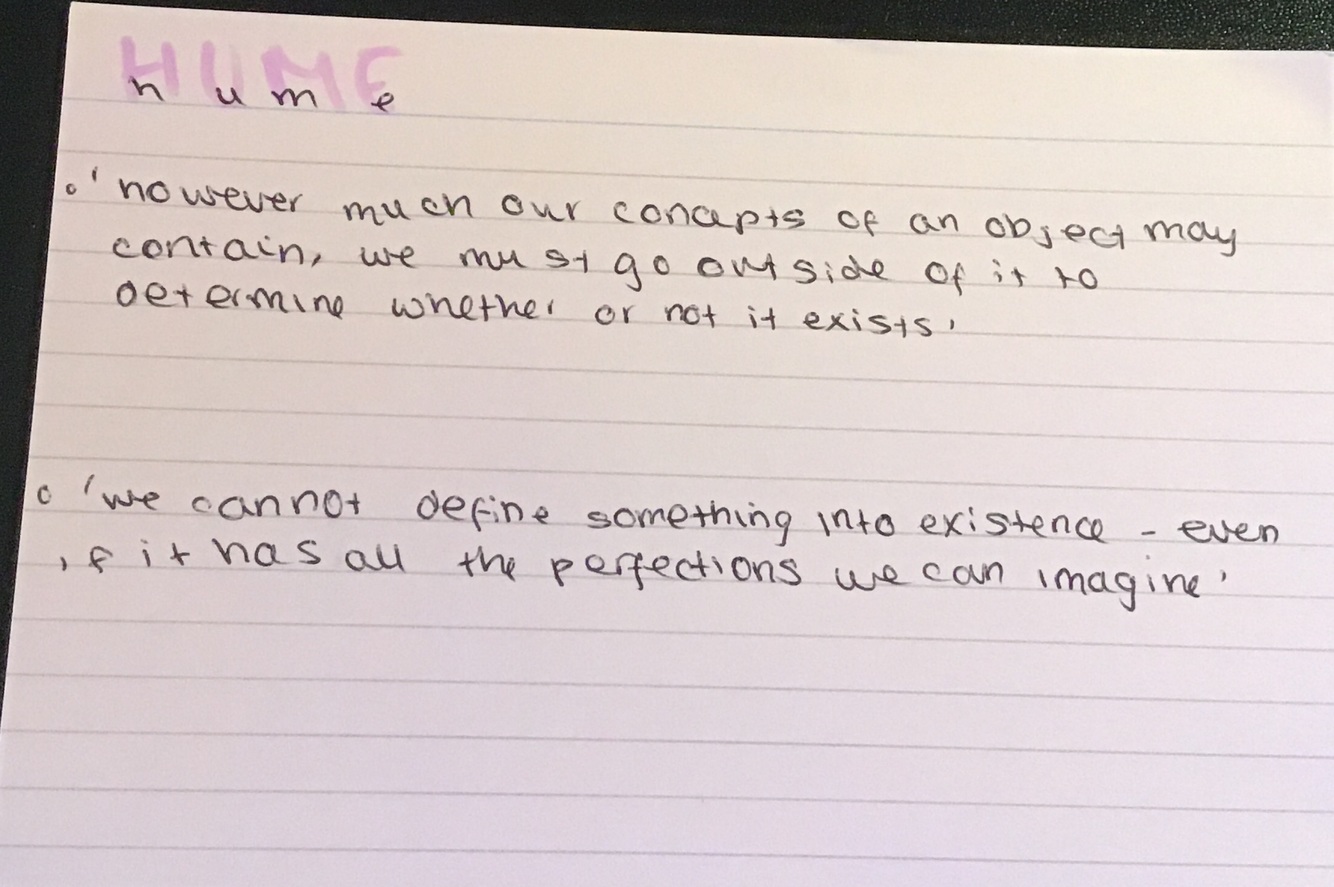 HUME
hume
'however much our concepts of an object may
contain, we must go outside of it to
determine whether or not it exists'
'we cannot define something into existence - even
if it has all the perfections we can imagine'